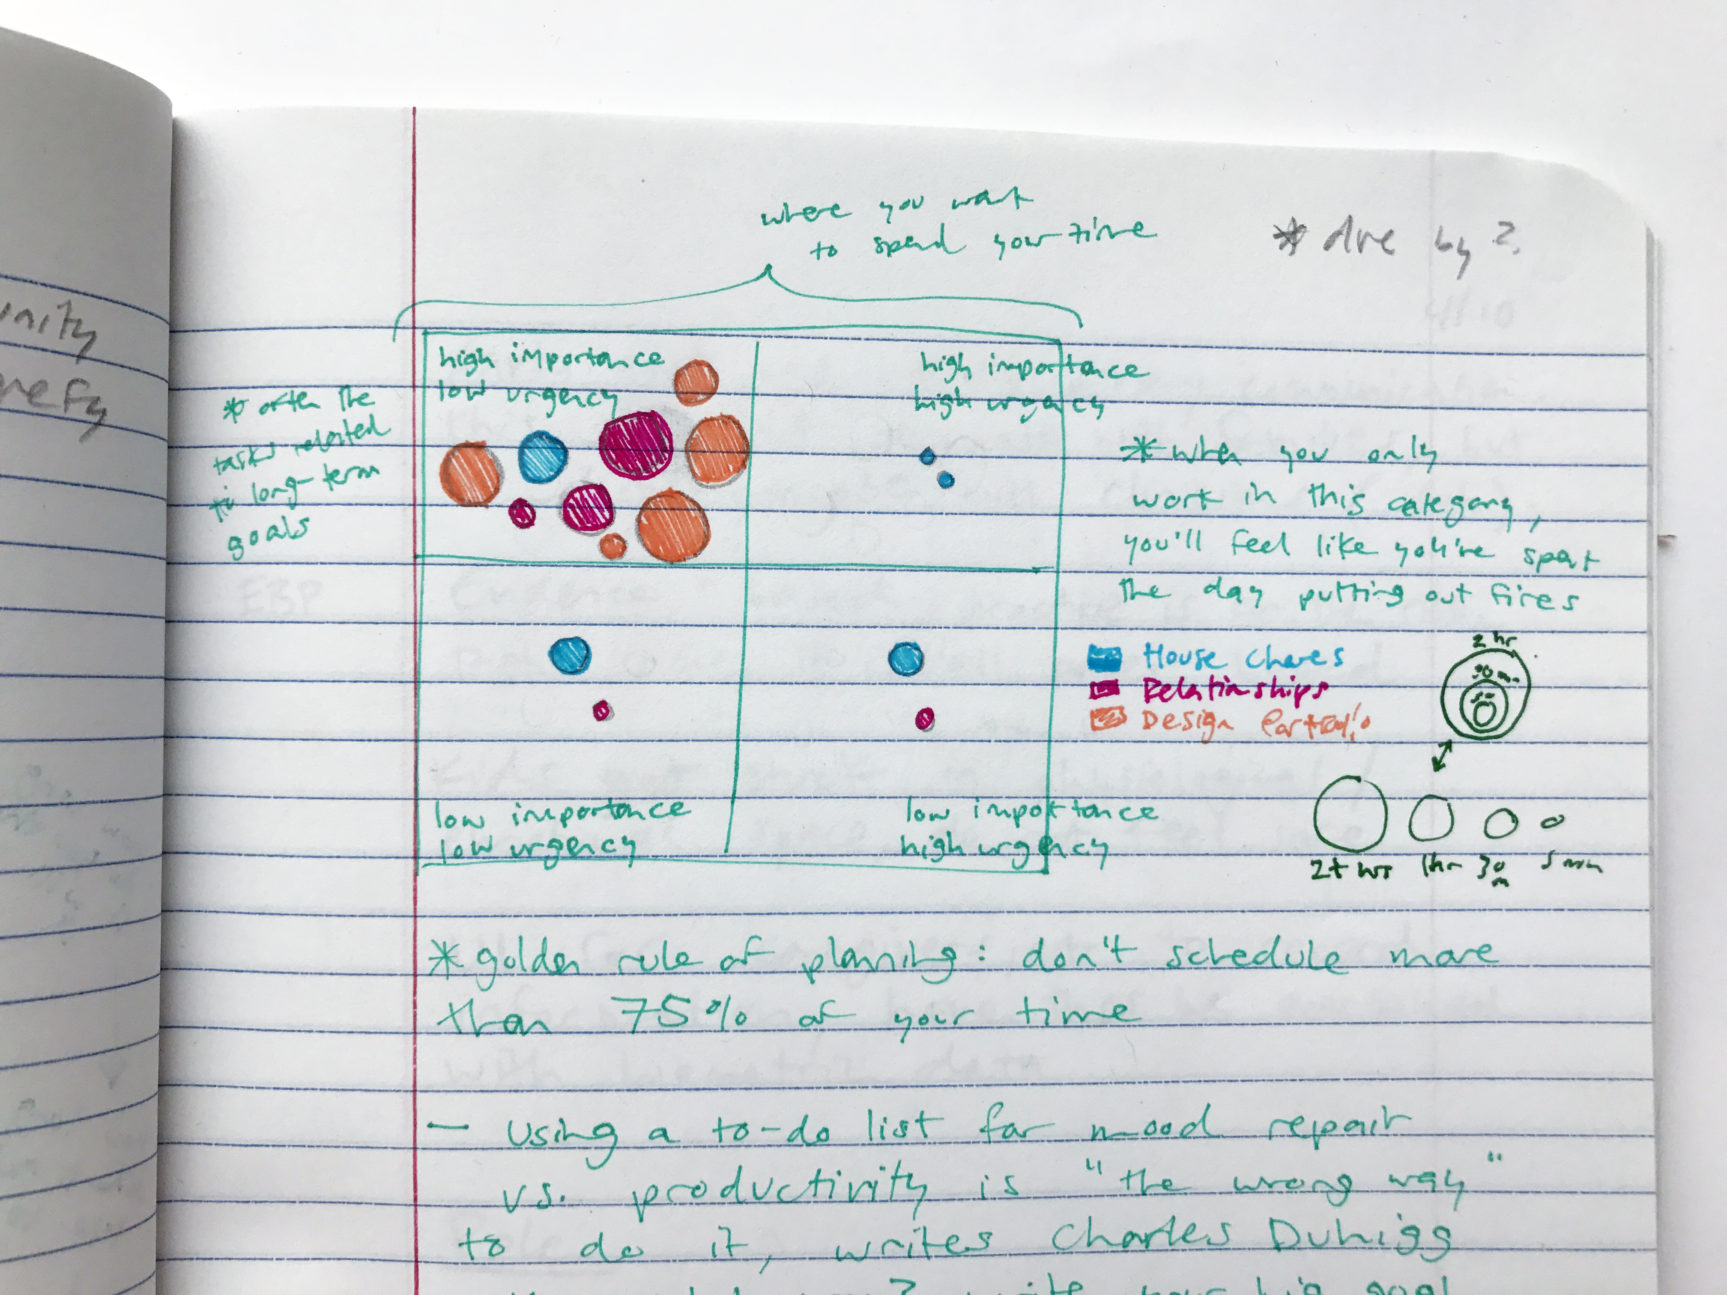 where you want
to spend your time
* due by ?
unity
high importance
low urgency
high importance
high urgency
* often the
tasks related
to long-term
goals
* when you only
work in this category,
you'll feel like you're spent
the day putting out fires
House chores
Relationships
Design Portfolio
2 hr
2+ hrs
1hr
30
m
5 min
low importance
low urgency
low importance
high urgency
* golden rule of planning: don't schedule more
than 75% of your time
— Using a to-do list for mood repair
vs. productivity is "the wrong way"
to do it, writes Charles Duhigg
write your big goal